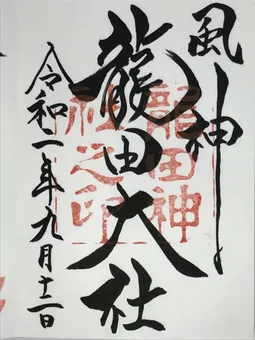 風神
龍田大社
令和一年九月十二日
龍田神
社之印